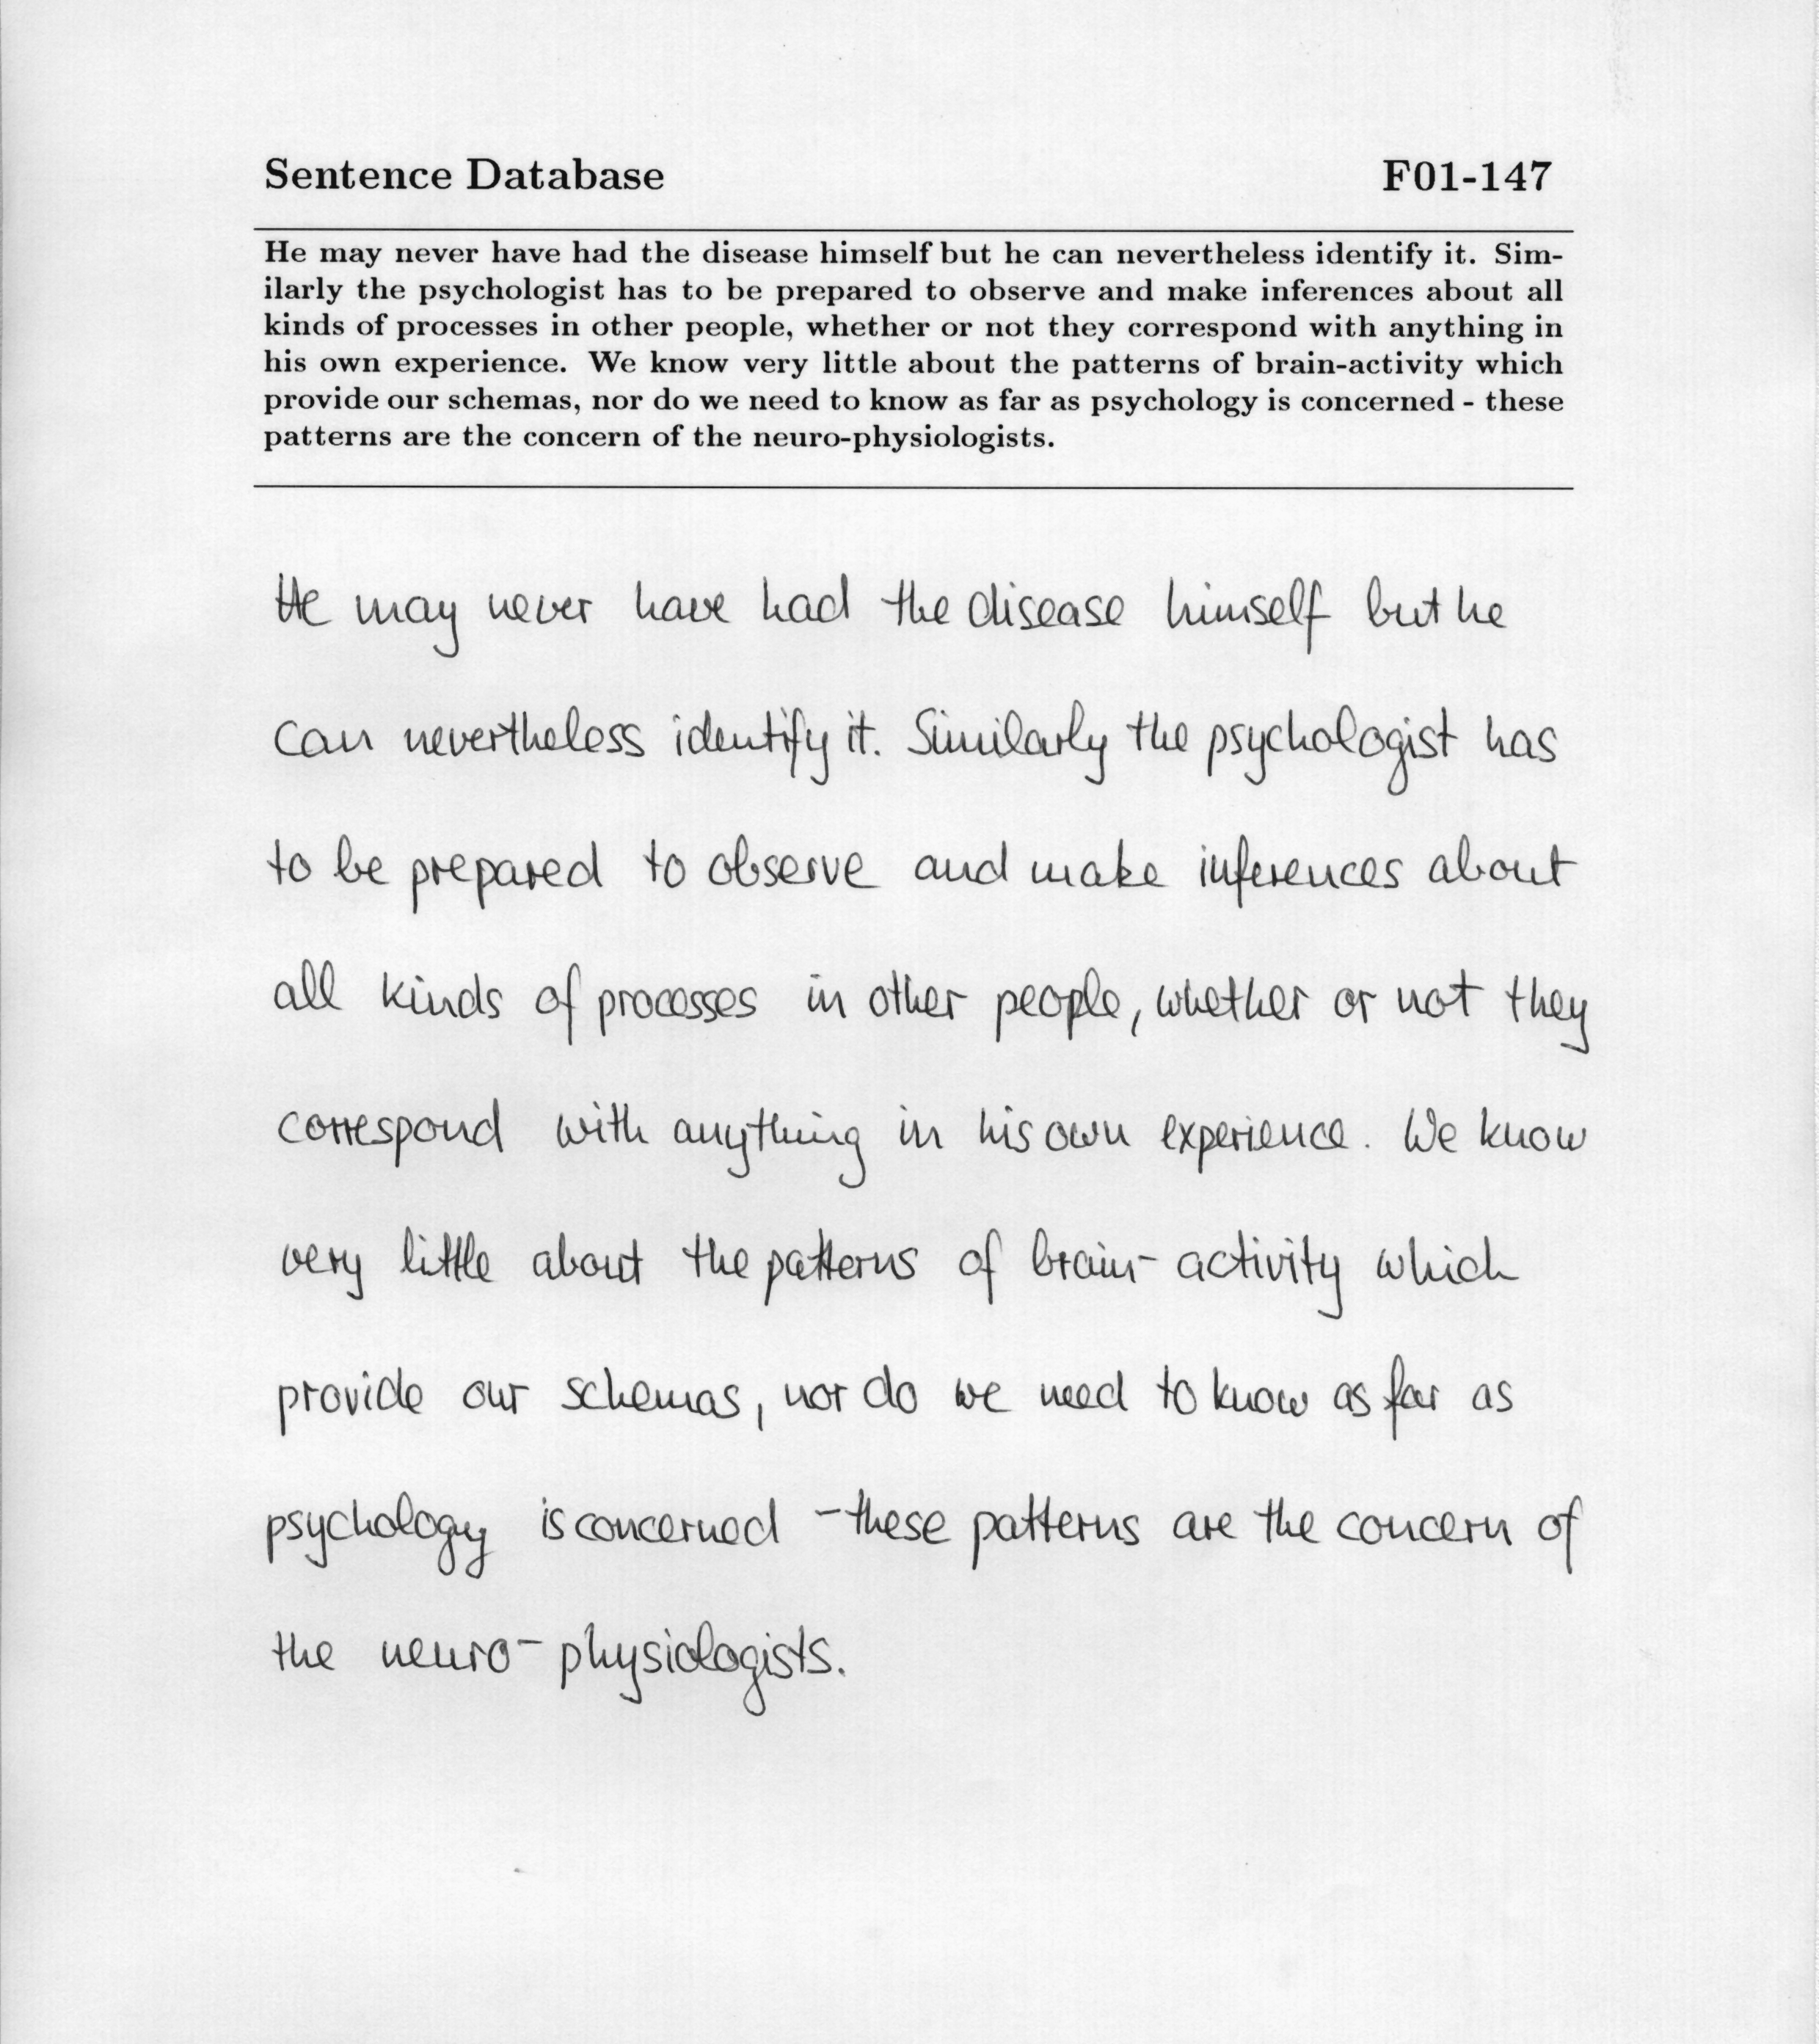 Sentence Database F01-147
He may never have had the disease himself but he can nevertheless identify it. Sim-
ilarly the psychologist has to be prepared to observe and make inferences about all
kinds of processes in other people, whether or not they correspond with anything in
his own experience. We know very little about the patterns of brain-activity which
provide our schemas, nor do we need to know as far as psychology is concerned - these
patterns are the concern of the neuro-physiologists.
He may never have had the disease himself but he
can nevertheless identify it. Similarly the psychologist has
to be prepared to observe and make inferences about
all kinds of processes in other people, whether or not they
correspond with anything in his own experience. We know
very little about the patterns of brain-activity which
provide our schemas, nor do we need to know as far as
psychology is concerned - these patterns are the concern of
the neuro-physiologists.